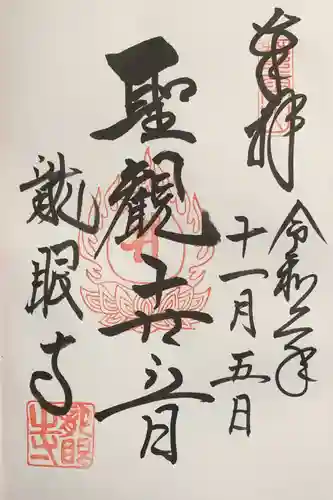 奉拝
令和二年
十一月五日
聖觀世音
龍眼寺